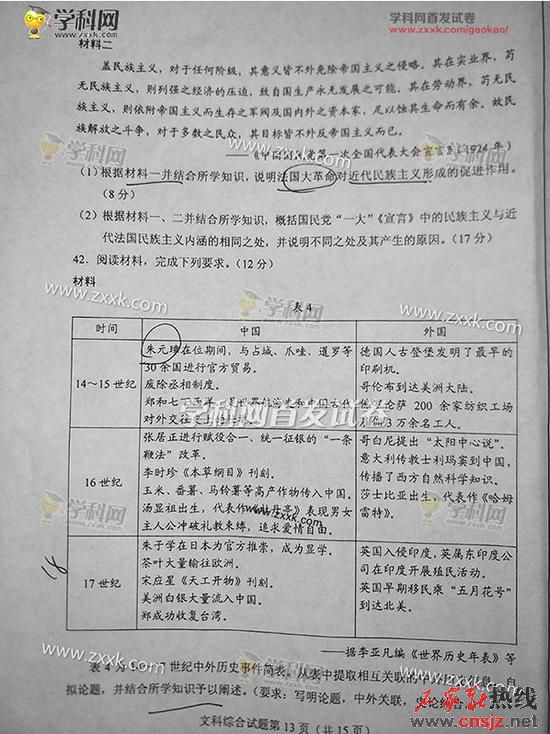 学科网
www.zxxk.com
学科网首发试卷
www.zxxk.com/gaokao/
材料二
盖民族主义,对于任何阶级,其意义皆不外免除帝国主义之侵略。其在实业界,苟
无民族主义,则列强之经济的压迫,致自国生产永无发展之可能。其在劳动界,苟无民
族主义,则依附帝国主义而生存之军阀及国内外之资本家,足以蚀其生命而有余。故民
族解放之斗争,对于多数之民众,其目标皆不外反帝国主义而已。
第一次全国代表大会宣言》(1924 年)
(1)根据材料一并结合所学知识,说明法国大革命对近代民族主义形成的促进作用。
(8 分)
(2)根据材料一、二并结合所学知识,概括国民党“一大”《宣言》中的民族主义与近
代法国民族主义内涵的相同之处,并说明不同之处及其产生的原因。(17 分)
42. 阅读材料,完成下列要求。(12 分)
材料
表 4
时间 中国 外国
14~15 世纪
朱元璋在位期间,与占城、爪哇、暹罗等
30 余国进行官方贸易。
废除丞相制度。
郑和七下西洋,是世界航海史和中国古代
对外交往史上的
德国人古登堡发明了最早的
印刷机。
哥伦布到达美洲大陆。
佛罗伦萨 200 余家纺织工场
3 万余名工人。
16 世纪
张居正进行赋役合一、统一征银的“一条
鞭法”改革。
李时珍《本草纲目》刊刻。
玉米、番薯、马铃薯等高产作物传入中国。
汤显祖出生,代表作《牡丹亭》表现男女
主人公冲破礼教束缚,追求爱情自由。
哥白尼提出“太阳中心说”。
意大利传教士利玛窦到中国,
传播了西方自然科学知识。
莎士比亚出生,代表作《哈姆
雷特》。
17 世纪
朱子学在日本为官方推崇,成为显学。
茶叶大量输往欧洲。
宋应星《天工开物》刊刻。
美洲白银大量流入中国。
郑成功收复台湾。
英国入侵印度,英属东印度公
司在印度开展殖民活动。
英国早期移民乘“五月花号”
到达北美。
——据李亚凡编《世界历史年表》等
表 4 为 世纪中外历史事件简表,从表中提取相互关联的中外历史信息,自
拟论题,并结合所学知识予以阐述。(要求:写明论题,中外关联,史论结合
文科综合试题第 13 页(共 15 页)
热线
www.cnsjz.net